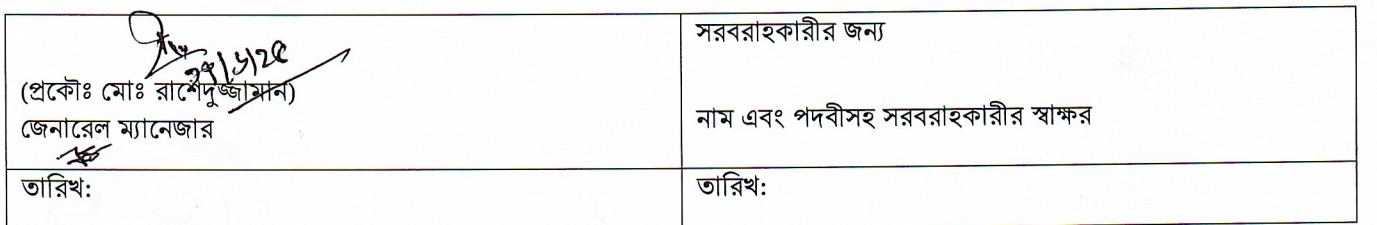 (প্রকৌঃ মোঃ রাশেদুজ্জামান)
জেনারেল ম্যানেজার
সরবরাহকারীর জন্য
নাম এবং পদবীসহ সরবরাহকারীর স্বাক্ষর
তারিখ:
তারিখ: